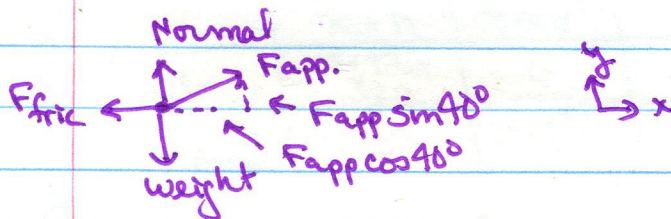 Normal
Fapp.
y
Ffric
Fapp sin 40°
x
Fapp cos 40°
weight